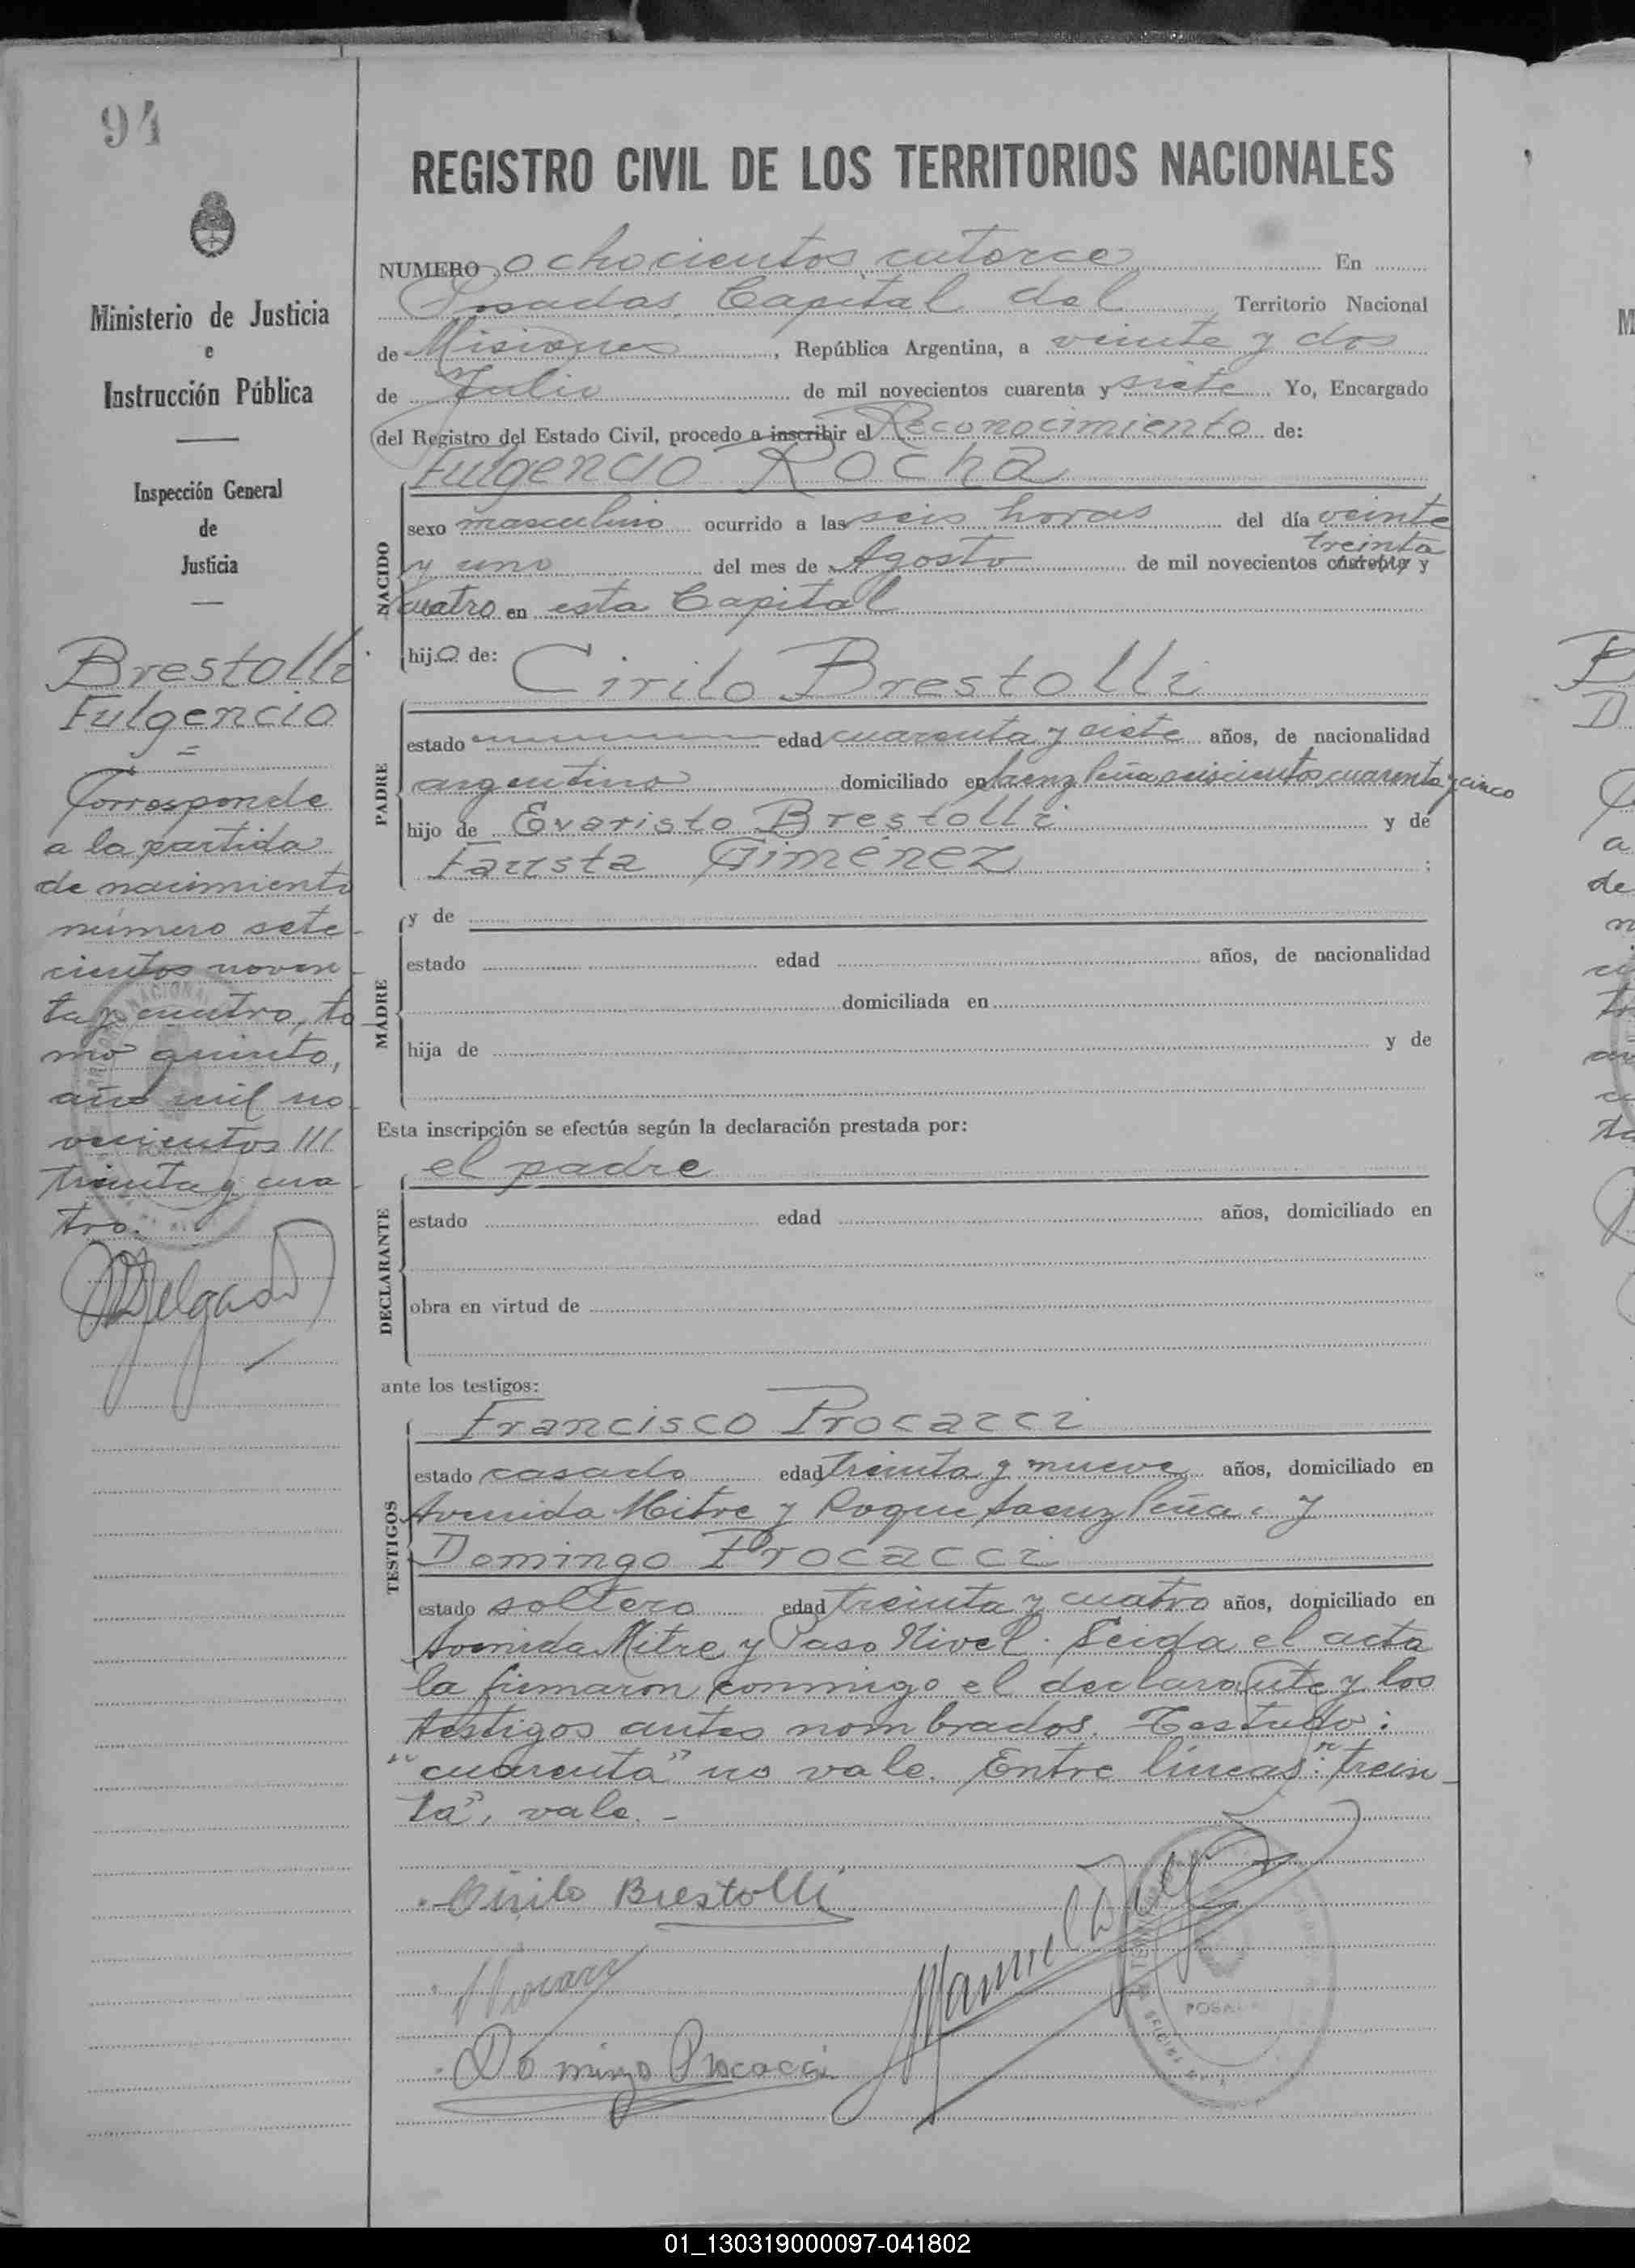 94
Ministerio de Justicia
e
Instrucción Pública
Inspección General
de
Justicia
Brestolli
Fulgencio
Corresponde
a la partida
de nacimiento
número sete-
cientos noven-
ta y cuatro, to-
mo quinto,
año mil no-
vecientos ///
treinta y cua-
tro.
REGISTRO CIVIL DE LOS TERRITORIOS NACIONALES
NUMERO ochocientos catorce En
Posadas, Capital del Territorio Nacional
de Misiones, República Argentina, a veinte y dos
de Julio de mil novecientos cuarenta y siete Yo, Encargado
del Registro del Estado Civil, procedo a inscribir el Reconocimiento de:
Fulgencio Rocha
NACIDO
sexo masculino ocurrido a las seis horas del día veinte
treinta
y uno del mes de Agosto de mil novecientos cuarenta y
cuatro en esta Capital
hijo de:
Cirilo Brestolli
PADRE
estado edad cuarenta y siete años, de nacionalidad
argentino domiciliado en Saenz Peña seiscientos cuarenta y cinco
hijo de Evaristo Brestolli y de
Fausta Giménez ;
MADRE
y de
estado edad años, de nacionalidad
domiciliada en
hija de y de
Esta inscripción se efectúa según la declaración prestada por:
el padre
DECLARANTE
estado edad años, domiciliado en
obra en virtud de
ante los testigos:
Francisco Procacci
TESTIGOS
estado casado edad treinta y nueve años, domiciliado en
Avenida Mitre y Roque Saenz Peña, y
Domingo Procacci
estado soltero edad treinta y cuatro años, domiciliado en
Avenida Mitre y Paso Nivel. Leida el acta
la firmaron conmigo el declarante y los
testigos antes nombrados. Testado:
"cuarenta" no vale. Entre líneas: "trein-
ta", vale.-
Cirilo Brestolli
Domingo Procacci
01_130319000097-041802